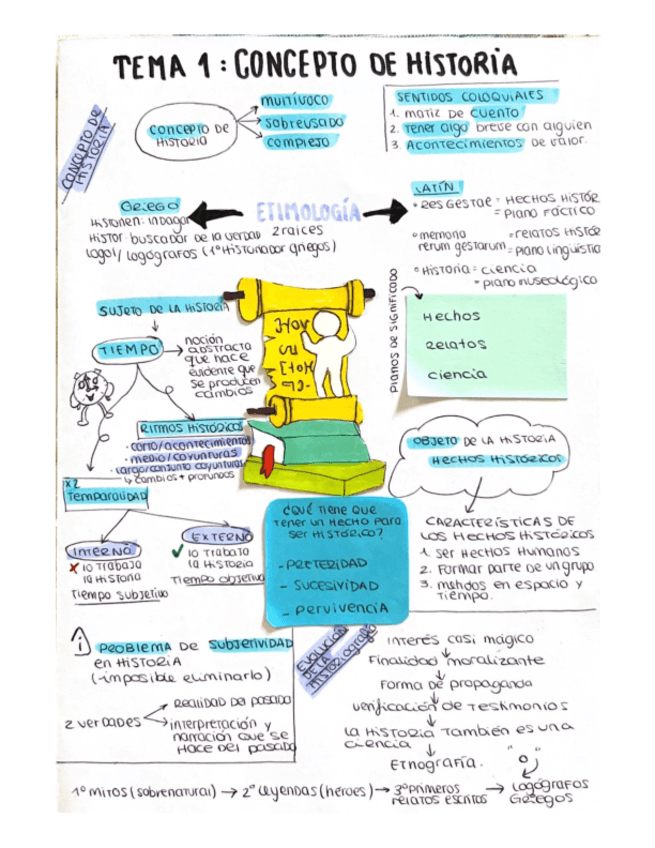 TEMA 1: CONCEPTO DE HISTORIA
CONCEPTO DE
HISTORIA
CONCEPTO DE
HISTORIA
multívoco
sobreusado
complejo
SENTIDOS COLOQUIALES
1. matiz de cuento
2. Tener algo breve con alguien
3. Acontecimientos de valor.
ETIMOLOGÍA
2 raíces
GRIEGO
Historien: indagar
Histor buscador de la verdad
Logoi/ Logógrafos (1º Historiador griegos)
LATÍN
• RES GESTAE = HECHOS HISTÓR
= Plano Fáctico
• memoria = relatos HISTÓR
rerum gestarum = plano lingüística
• Historia = ciencia
= plano museológico
PLANOS DE SIGNIFICADO
Hechos
Relatos
ciencia
SUJETO DE LA HISTORIA
TIEMPO
noción
abstracta
que hace
evidente que
se producen
cambios
RITMOS HISTÓRICOS
• corto/acontecimientos
• medio/coyunturas
• Largo/conjunto coyunturas
↳ cambios + profundos
x2
Temporalidad
INTERNO
✗ lo Trabaja
la Historia
Tiempo subjetivo
EXTERNO
✓ lo Trabaja
la Historia
Tiempo objetivo
¿QUÉ TIENE QUE
TENER UN HECHO PARA
SER HISTÓRICO?
- PRETERIDAD
- SUCESIVIDAD
- Pervivencia
OBJETO DE LA HISTORIA
HECHOS HISTÓRICOS
CARACTERÍSTICAS DE
LOS HECHOS HISTÓRICOS
1. Ser HECHOS HUMANOS
2. Formar parte de un grupo
3. en espacio y
Tiempo.
i PROBLEMA DE SUBJETIVIDAD
en HISTORIA
(-imposible eliminarlo)
2 verdades
Realidad del pasado
interpretación y
narración que se
Hace del pasado
EVOLUCIÓN
DE LA
Interés casi mágico
Finalidad moralizante
Forma de propaganda
verificación de Testimonios
La Historia También es una
ciencia
Etnografía.
1º mitos (sobrenatural) → 2º Leyendas (héroes) → 3º primeros
relatos escritos
→ Logógrafos
Griegos